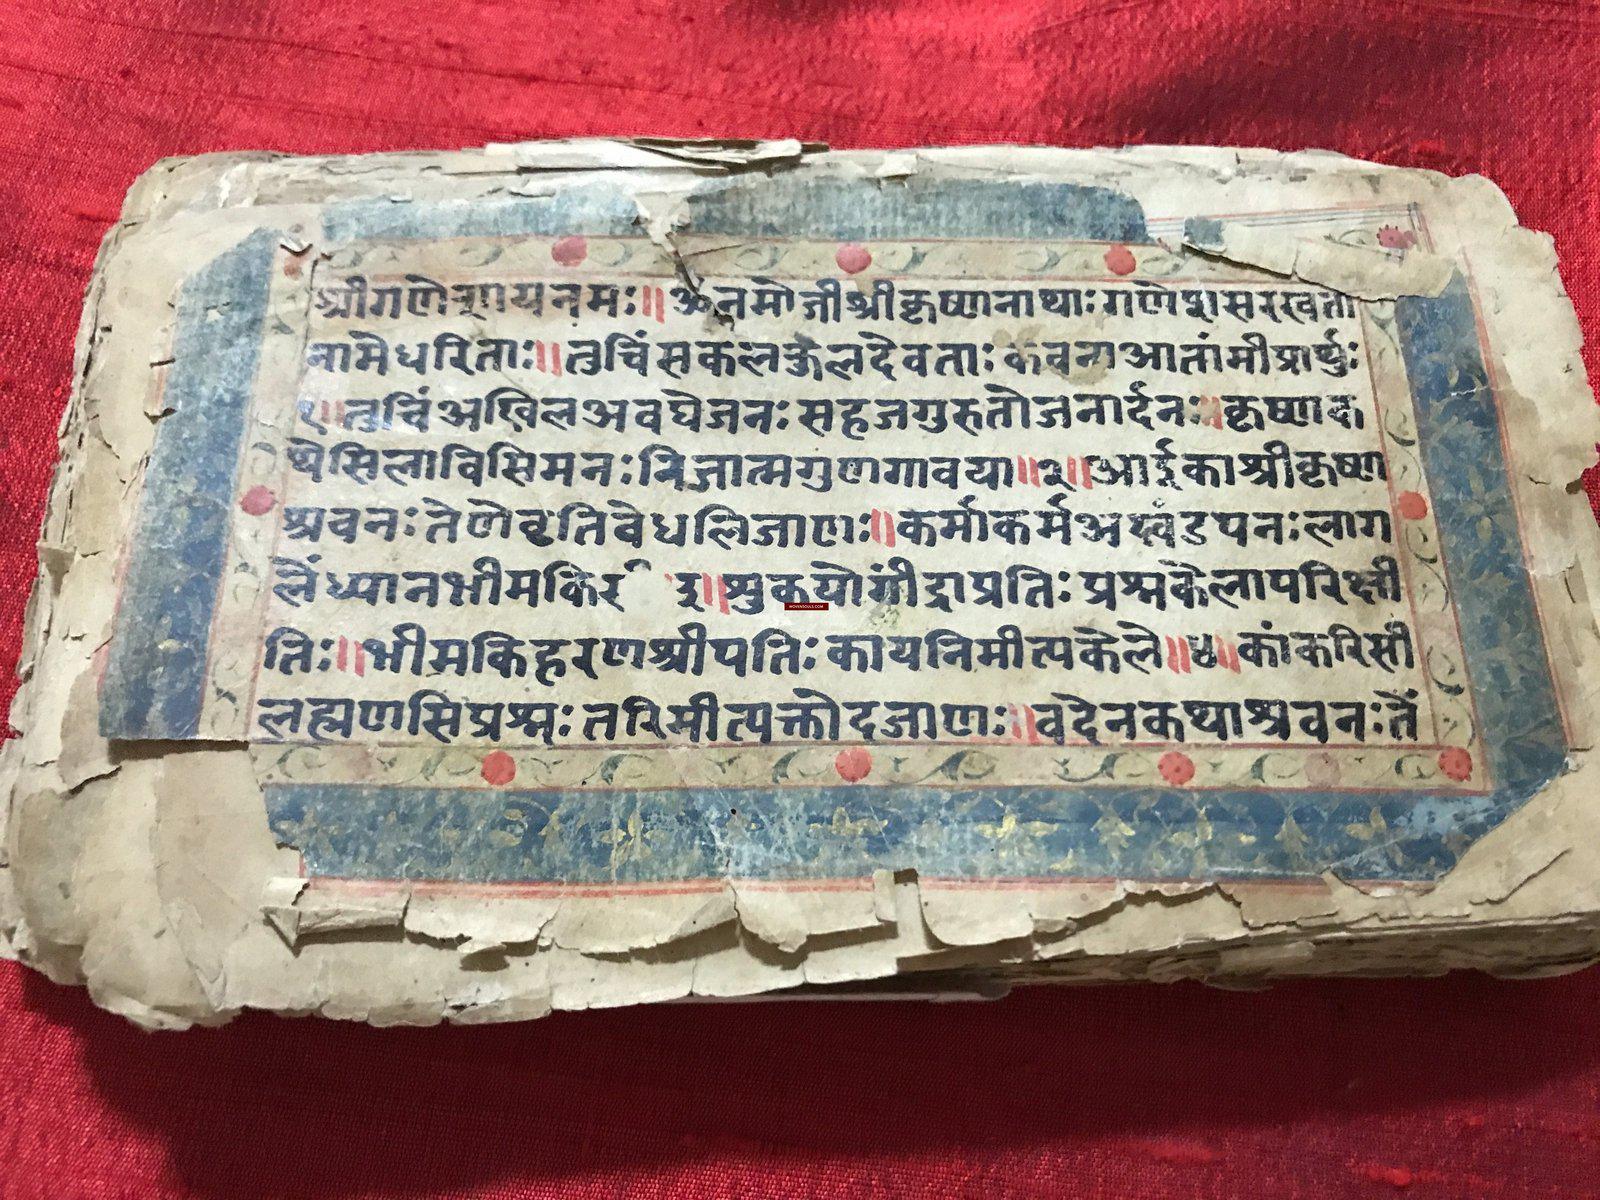 श्रीगणेशायनमः॥ॐनमोजीश्रीकृष्णनाथाःगणेशसरस्वती
नामेधरिताः॥तुचिंसकलकुलदैवताः कवनाआतांमीप्रार्थुः
१॥तुचिंअखिलअवघेजनःसहजगुरुतोजनार्दनः॥कृष्णक
थेसिलाविसिमनःनिजात्मगुणगावया॥२॥आईकाश्रीकृष्ण
श्रवनःतेणेवृतिवेधलिजाणः॥कर्माकर्मअखंडपनःलाग
लेंध्यानभीमकिर ३॥शुकयोगींद्राप्रतिःप्रश्नकेलापरिक्षी
तिः॥भीमकिहरणश्रीपतिःकायनिमीत्यकेले॥४॥कांकरिसी
लह्मणसिप्रश्नःतरिमीत्यक्तोदजाणः॥वदेनकथाश्रवनःतें
WOVENSOULS.COM